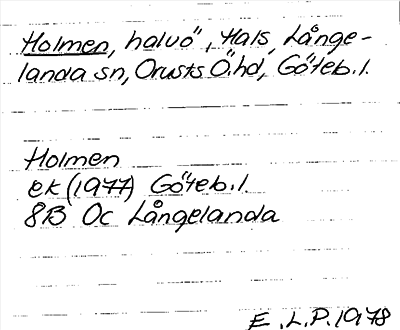 Holmen, halvö, Hals, Långe-
landa sn, Orusts Ö. hd, Göteb. l.
Holmen
ek (1977) Göteb. l.
8B 0c Långelanda
E. L. P. 1978